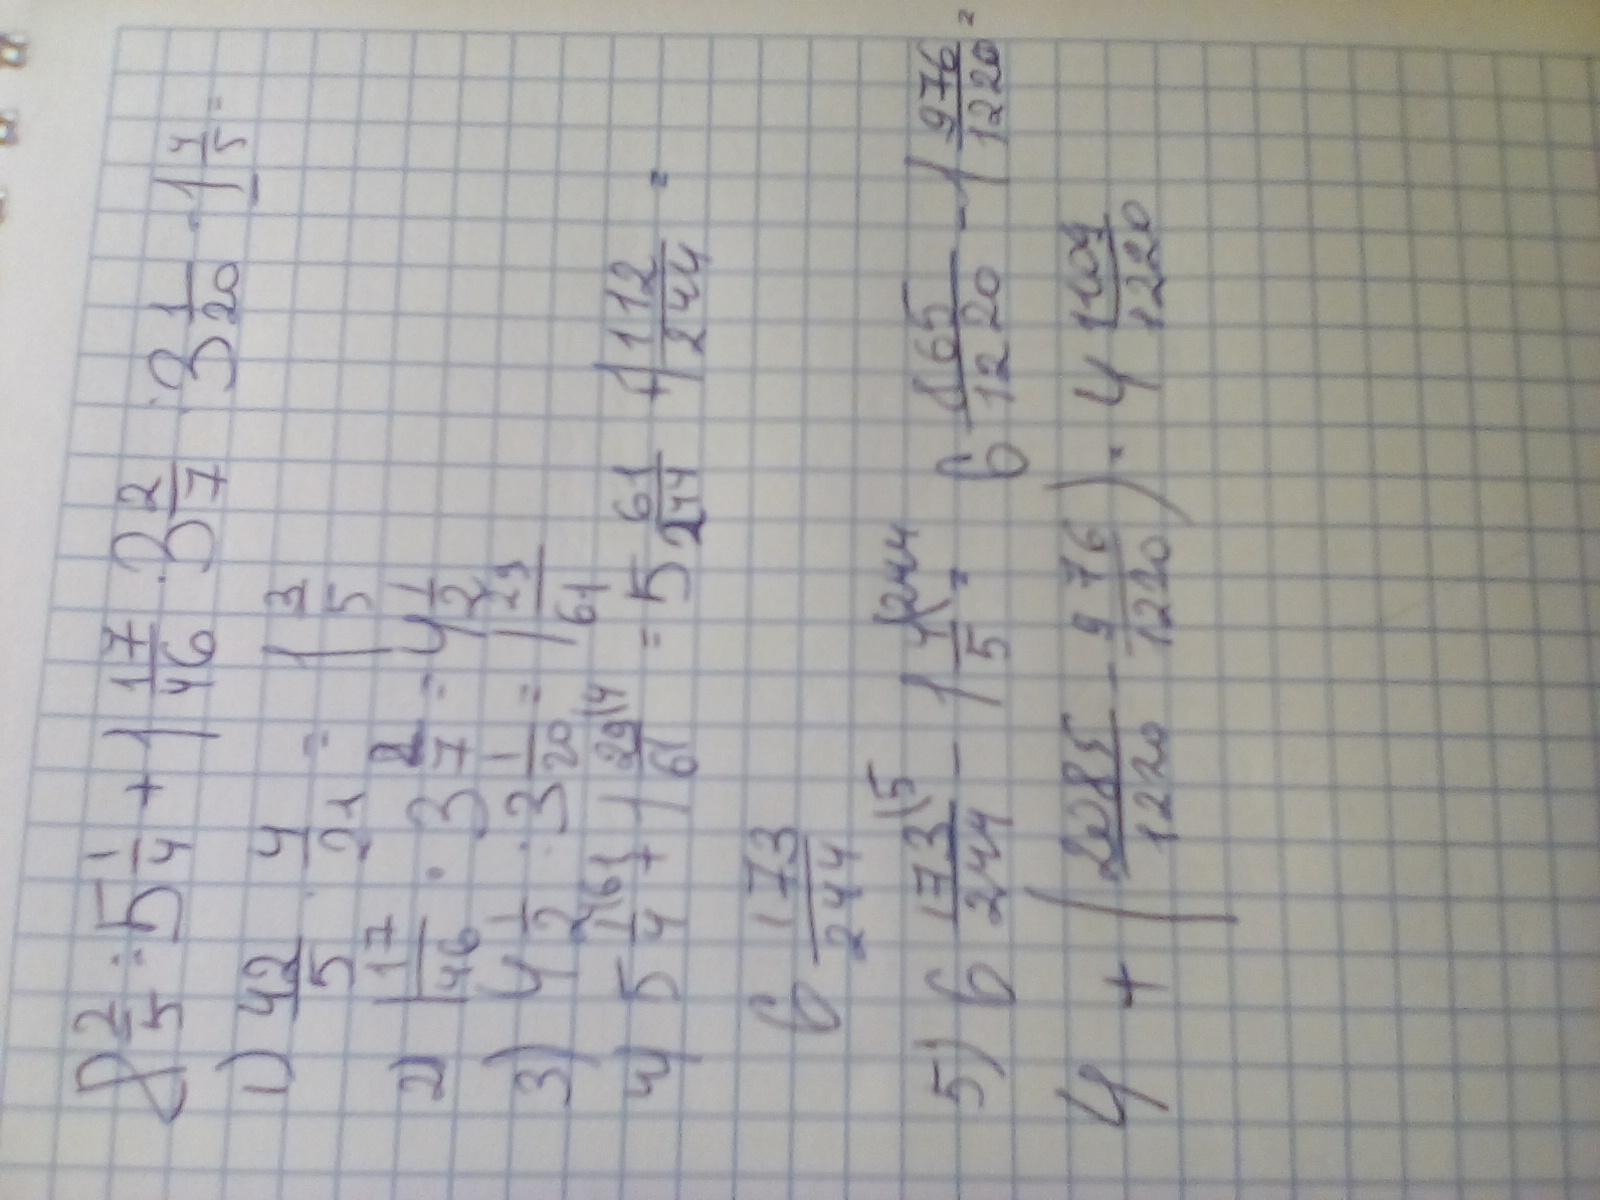 8 2/5 : 5 1/4 + 1 17/46 · 3 2/7 : 3 1/20 - 1 4/5 =
1) 42/5 · 4/21 = 1 3/5
2) 1 17/46 · 3 2/7 = 4 1/2
3) 4 1/2 : 3 1/20 = 1 29/61
4) 5 1/4 (61 + 1 29/61 (4 = 5 61/244 + 1 112/244 =
6 173/244
5) 6 173/244 (5 - 1 4/5 (244 = 6 865/1220 - 1 976/1220 =
4 + ( 2085/1220 - 976/1220 ) = 4 1109/1220